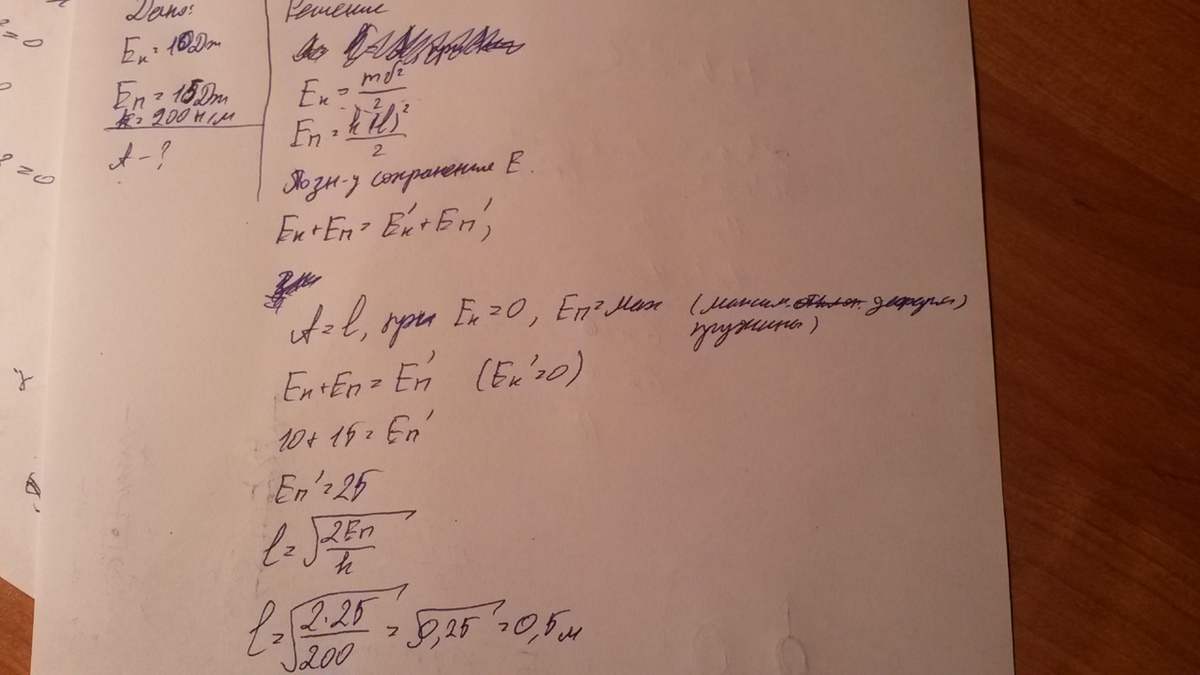 Дано:
Eк = 10Дж
Eп = 15Дж
k = 200 н/м
A - ?
Решение
Eк = mv²/2
Eп = k(l)²/2
По зн-у сохранения E.
Eк + Eп = Eк' + Eп',
A = l, при Eк = 0, Eп = max (максим. деформ)
пружины)
Eк + Eп = Eп' (Eк' = 0)
10 + 15 = Eп'
Eп' = 25
l = √2Eп/k
l = √2·25/200 = √0,25 = 0,5 м
²=0
² = 0